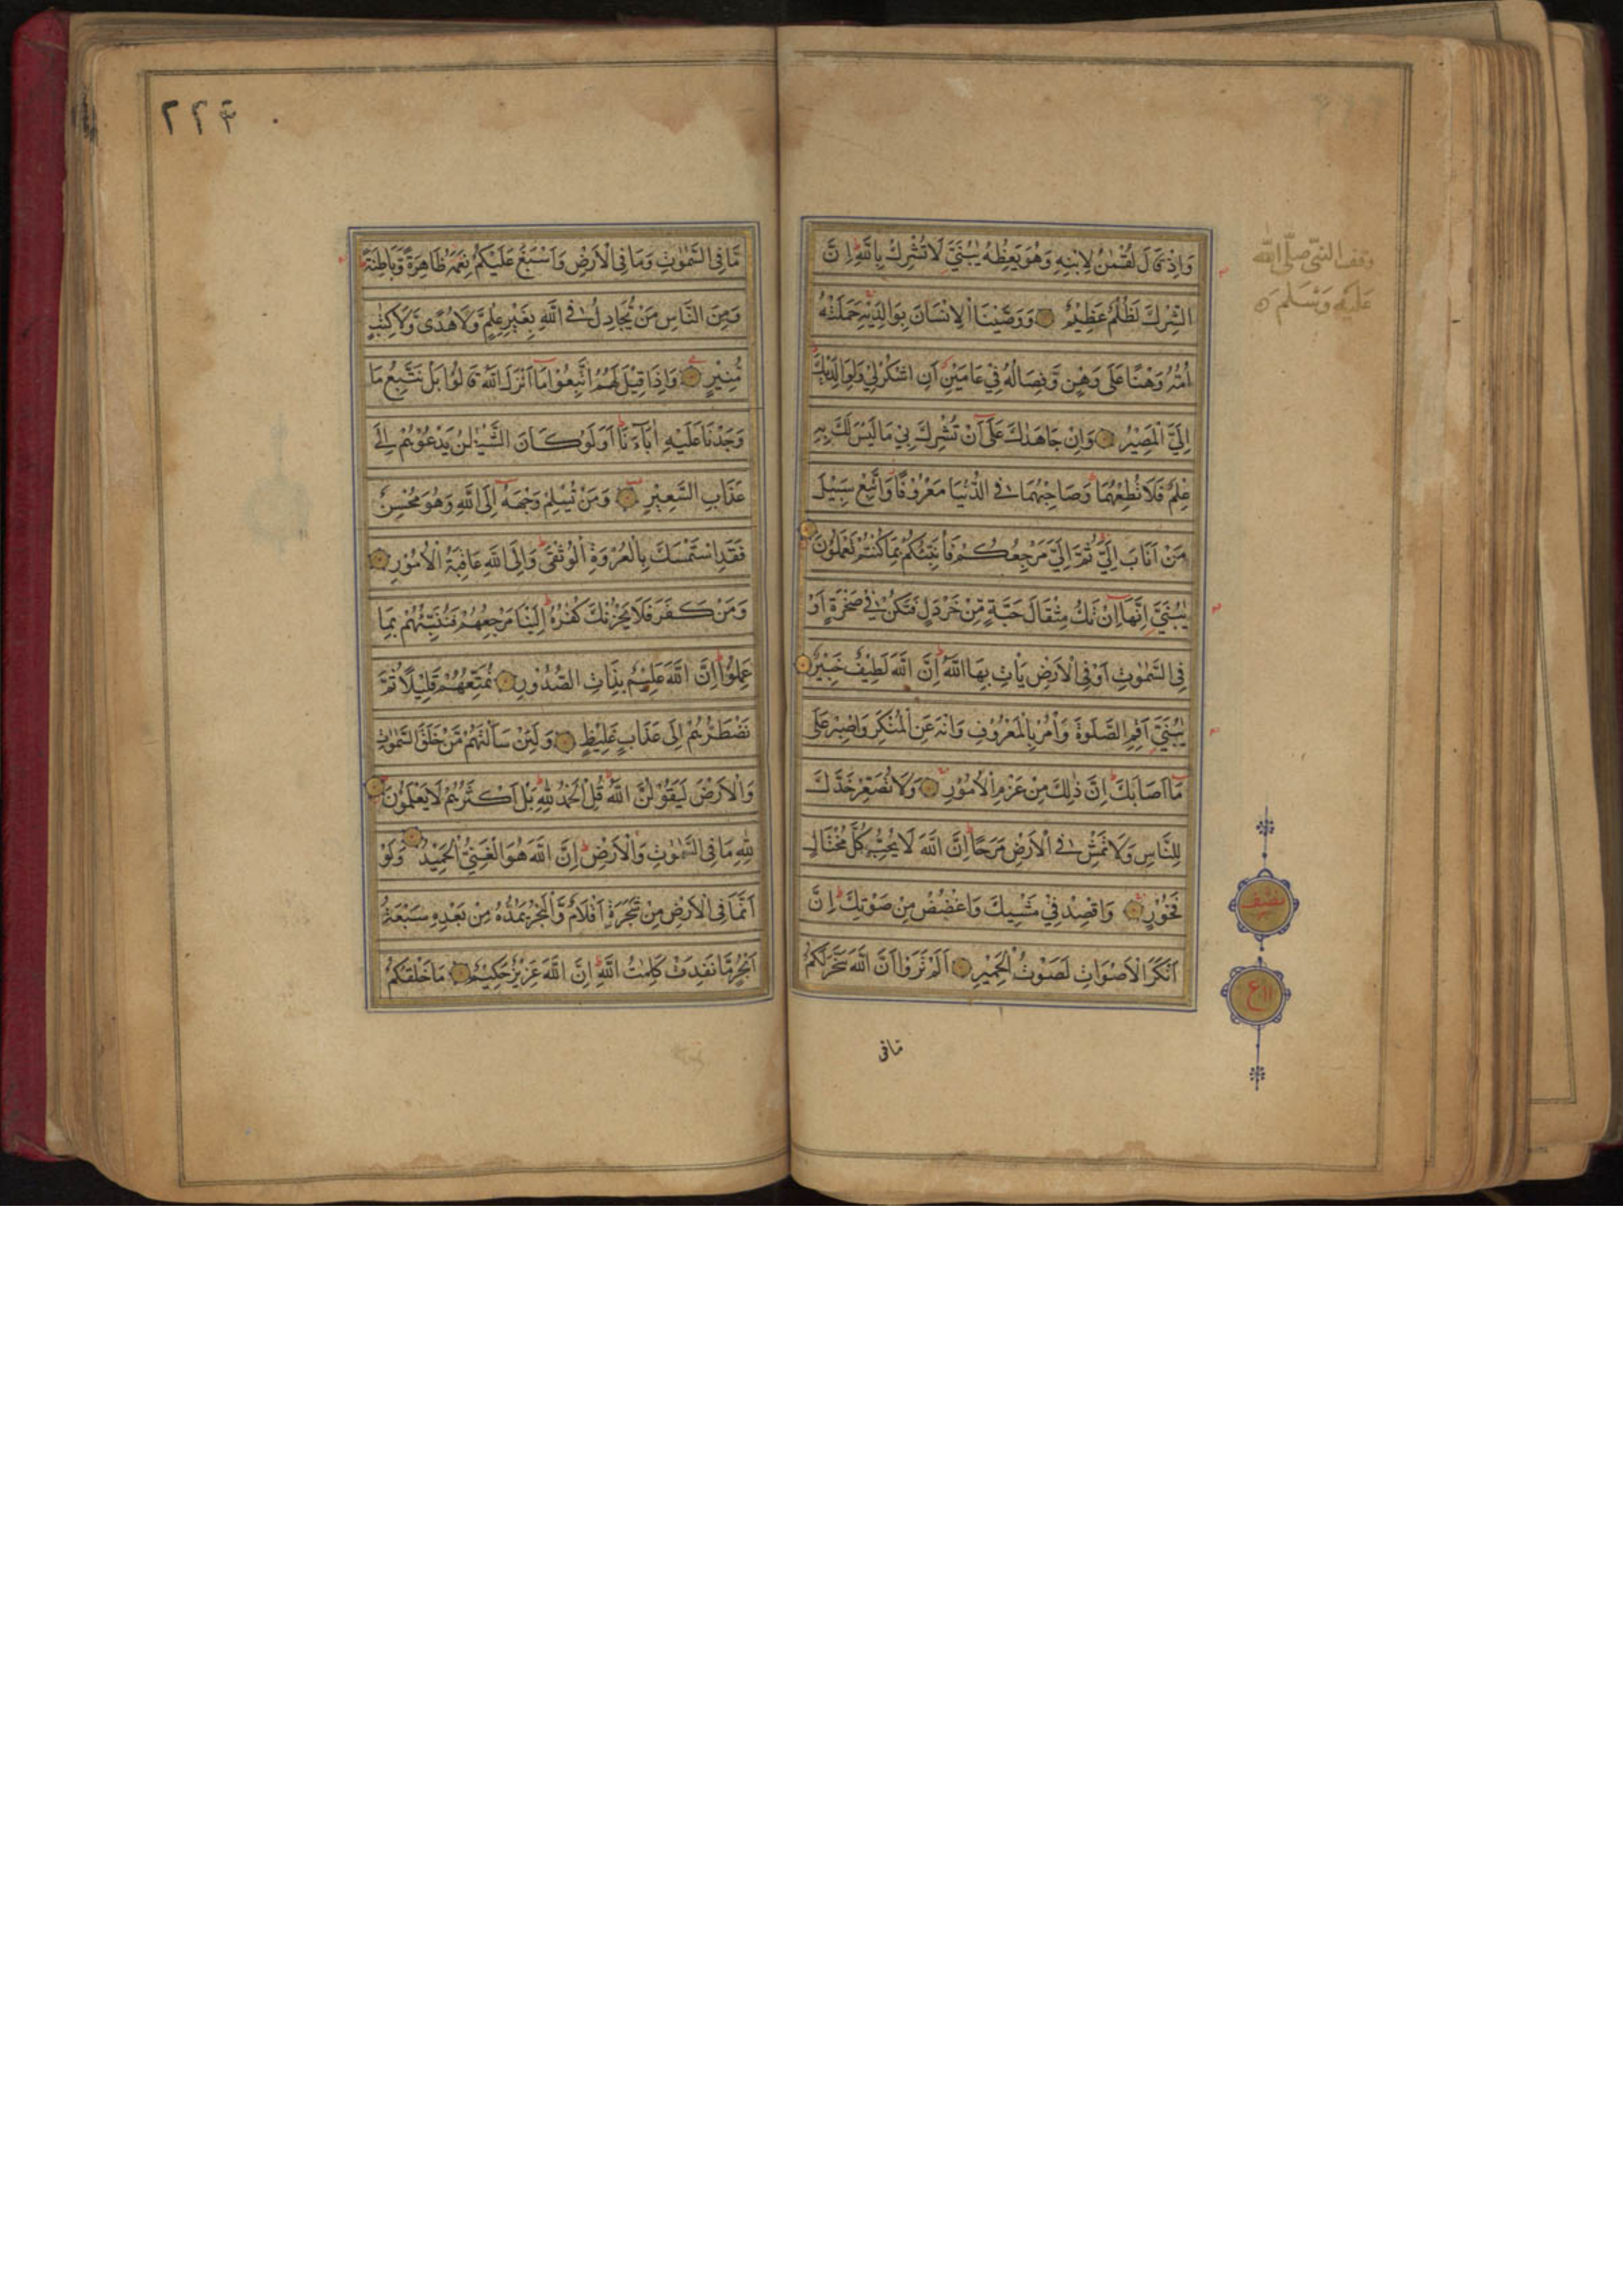 وَاِذْ قَالَ لُقْمٰنُ لِابْنِهِ وَهُوَ يَعِظُهُ يٰبُنَيَّ لَا تُشْرِكْ بِاللّٰهِ اِنَّ
الشِّرْكَ لَظُلْمٌ عَظِيْمٌ وَوَصَّيْنَا الْاِنْسَانَ بِوَالِدَيْهِ حَمَلَتْهُ
اُمُّهُ وَهْنًا عَلٰى وَهْنٍ وَّفِصَالُهُ فِيْ عَامَيْنِ اَنِ اشْكُرْلِيْ وَلِوَالِدَيْكَ
اِلَيَّ الْمَصِيْرُ وَاِنْ جَاهَدٰكَ عَلٰٓى اَنْ تُشْرِكَ بِيْ مَا لَيْسَ لَكَ بِهِ
عِلْمٌ فَلَا تُطِعْهُمَا وَصَاحِبْهُمَا فِي الدُّنْيَا مَعْرُوْفًا وَاتَّبِعْ سَبِيْلَ
مَنْ اَنَابَ اِلَيَّ ثُمَّ اِلَيَّ مَرْجِعُكُمْ فَاُنَبِّئُكُمْ بِمَا كُنْتُمْ تَعْمَلُوْنَ
يٰبُنَيَّ اِنَّهَآ اِنْ تَكُ مِثْقَالَ حَبَّةٍ مِّنْ خَرْدَلٍ فَتَكُنْ فِيْ صَخْرَةٍ اَوْ
فِى السَّمٰوٰتِ اَوْ فِى الْاَرْضِ يَاْتِ بِهَا اللّٰهُ اِنَّ اللّٰهَ لَطِيْفٌ خَبِيْرٌ
يٰبُنَيَّ اَقِمِ الصَّلٰوةَ وَاْمُرْ بِالْمَعْرُوْفِ وَانْهَ عَنِ الْمُنْكَرِ وَاصْبِرْ عَلٰى
مَآ اَصَابَكَ اِنَّ ذٰلِكَ مِنْ عَزْمِ الْاُمُوْرِ وَلَا تُصَعِّرْ خَدَّكَ
لِلنَّاسِ وَلَا تَمْشِ فِي الْاَرْضِ مَرَحًا اِنَّ اللّٰهَ لَا يُحِبُّ كُلَّ مُخْتَالٍ
فَخُوْرٍ وَاقْصِدْ فِيْ مَشْيِكَ وَاغْضُضْ مِنْ صَوْتِكَ اِنَّ
اَنْكَرَ الْاَصْوَاتِ لَصَوْتُ الْحَمِيْرِ اَلَمْ تَرَوْا اَنَّ اللّٰهَ سَخَّرَ لَكُمْ
مّا فى
وقف النبى صلّى الله
عليه وسلم
نصف
ع ١١
٢٢٤
مَّا فِى السَّمٰوٰتِ وَمَا فِى الْاَرْضِ وَاَسْبَغَ عَلَيْكُمْ نِعَمَهُ ظَاهِرَةً وَّبَاطِنَةً
وَمِنَ النَّاسِ مَنْ يُّجَادِلُ فِي اللّٰهِ بِغَيْرِ عِلْمٍ وَّلَا هُدًى وَّلَا كِتٰبٍ
مُّنِيْرٍ وَاِذَا قِيْلَ لَهُمُ اتَّبِعُوْا مَآ اَنْزَلَ اللّٰهُ قَالُوْا بَلْ نَتَّبِعُ مَا
وَجَدْنَا عَلَيْهِ اٰبَآءَنَا اَوَلَوْ كَانَ الشَّيْطٰنُ يَدْعُوْهُمْ اِلٰى
عَذَابِ السَّعِيْرِ وَمَنْ يُّسْلِمْ وَجْهَهُٓ اِلَى اللّٰهِ وَهُوَ مُحْسِنٌ
فَقَدِ اسْتَمْسَكَ بِالْعُرْوَةِ الْوُثْقٰى وَاِلَى اللّٰهِ عَاقِبَةُ الْاُمُوْرِ
وَمَنْ كَفَرَ فَلَا يَحْزُنْكَ كُفْرُهُ اِلَيْنَا مَرْجِعُهُمْ فَنُنَبِّئُهُمْ بِمَا
عَمِلُوْا اِنَّ اللّٰهَ عَلِيْمٌ بِذَاتِ الصُّدُوْرِ نُمَتِّعُهُمْ قَلِيْلًا ثُمَّ
نَضْطَرُّهُمْ اِلٰى عَذَابٍ غَلِيْظٍ وَلَئِنْ سَاَلْتَهُمْ مَّنْ خَلَقَ السَّمٰوٰتِ
وَالْاَرْضَ لَيَقُوْلُنَّ اللّٰهُ قُلِ الْحَمْدُ لِلّٰهِ بَلْ اَكْثَرُهُمْ لَا يَعْلَمُوْنَ
لِلّٰهِ مَا فِى السَّمٰوٰتِ وَالْاَرْضِ اِنَّ اللّٰهَ هُوَ الْغَنِيُّ الْحَمِيْدُ وَلَوْ
اَنَّمَا فِى الْاَرْضِ مِنْ شَجَرَةٍ اَقْلَامٌ وَّالْبَحْرُ يَمُدُّهُ مِنْ بَعْدِهِ سَبْعَةُ
اَبْحُرٍ مَّا نَفِدَتْ كَلِمٰتُ اللّٰهِ اِنَّ اللّٰهَ عَزِيْزٌ حَكِيْمٌ مَا خَلْقُكُمْ